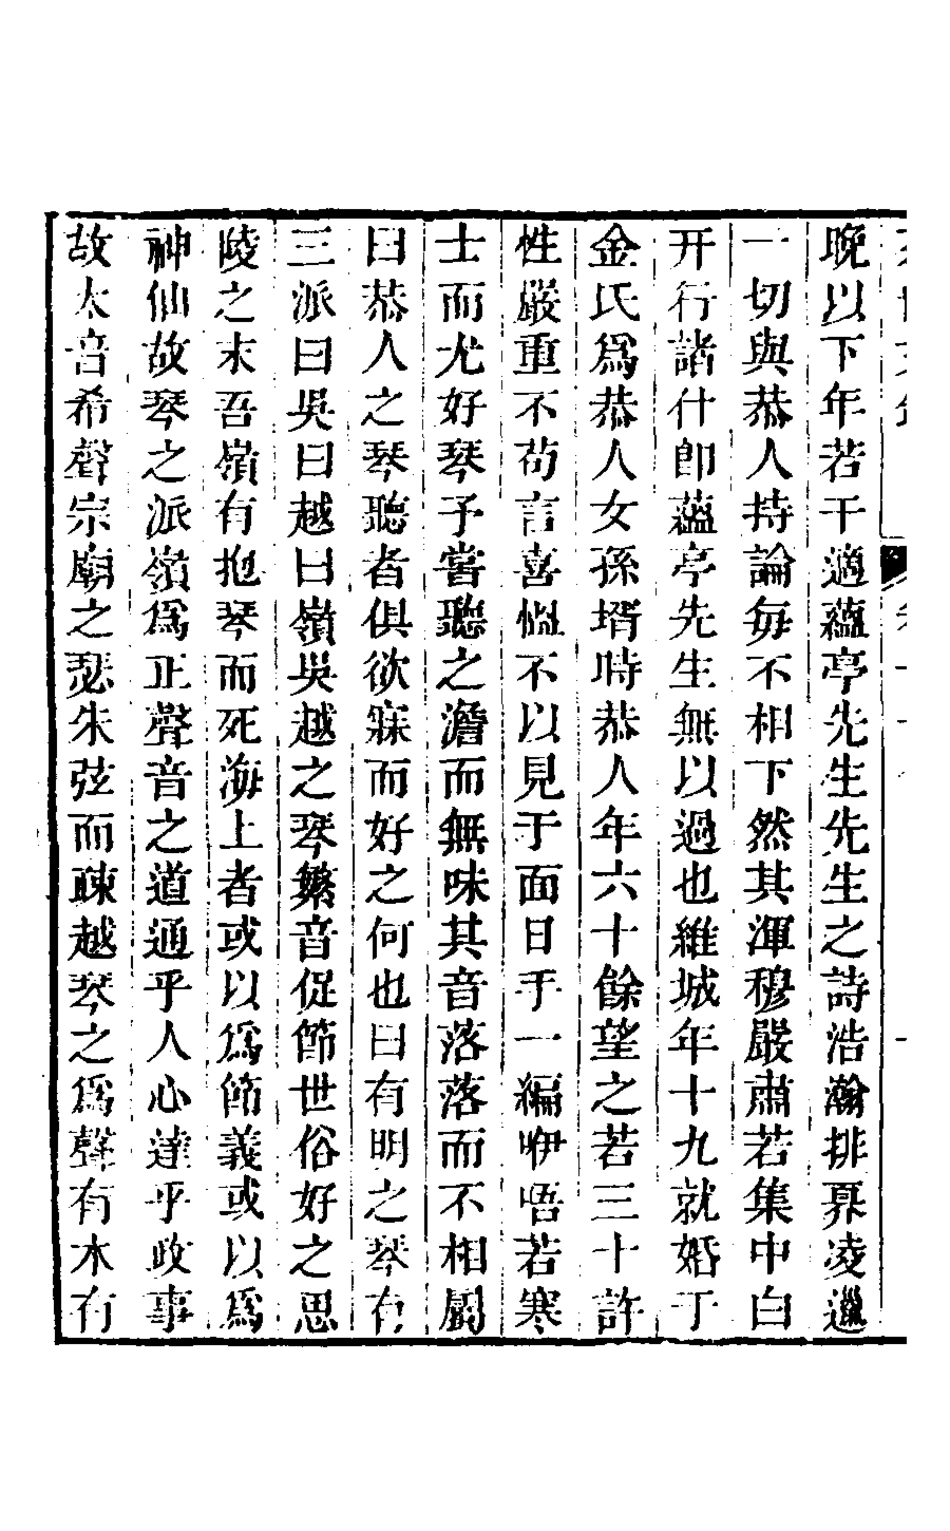 晚以下年若干適蘊亭先生先生之詩浩瀚排奡凌邋
一切與恭人持論每不相下然其渾穆嚴肅若集中白
开行諸什卽蘊亭先生無以過也維城年十九就婚于
金氏爲恭人女孫壻時恭人年六十餘望之若三十許
性嚴重不苟言喜慍不以見于面日手一編咿唔若寒
士而尤好琴予嘗聽之澹而無味其音落落而不相屬
曰恭人之琴聽者俱欲寐而好之何也曰有明之琴有
三派曰吳曰越曰嶺吳越之琴繁音促節世俗好之思
陵之末吾嶺有抱琴而死海上者或以爲節義或以爲
神仙故琴之派嶺爲正聲音之道通乎人心達乎政事
故太音希聲宗廟之瑟朱弦而疎越琴之爲聲有木有